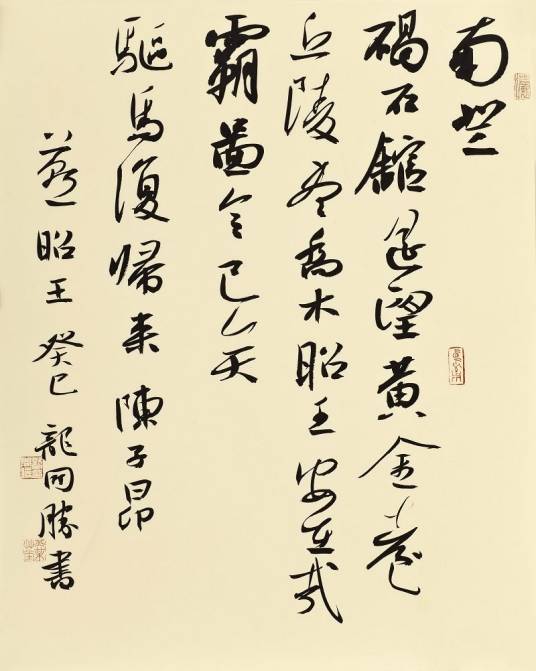 南登
碣石館遥望黄金臺
丘陵盡喬木昭王安在哉
霸圖今已矣
驅馬復歸来陳子昂
燕昭王癸巳龍開勝書